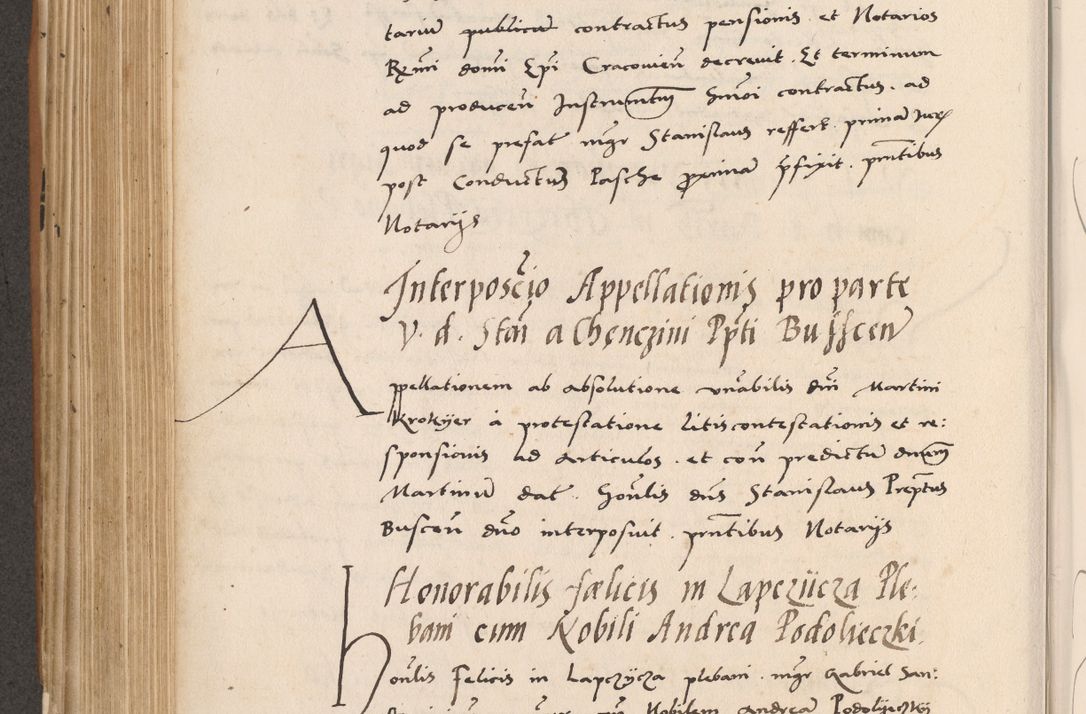 tariū publicū contractus pensionis et Notarios
Rx̄mi domi Ep̄i Cracovieñ decrevit. Et terminum
ad produceñ Instrumentum hm̄oi contractus. ad
quod se prefat mgr Stanislaus reffert. primā
post Conductus Pasche proximā p̄fixit. pñtibus
Notarijs
Interposc̄io Appellationis pro parte
V. d. Stañ a Chenczini Pp̄ti Bujscen
Appellationem ab absolutione vn̄abilis dn̄i Martini
Krokyer à protestatione litiscontestationis et re:
sponsionis ad articulos. et coñ predictū dnum
Martinū dat. Hon̄lis dn̄s Stanislaus Prep̄tus
Busceñ dn̄o interposuit. pn̄tibus Notarijs
Honorabilis fœlicis in Lapczijcza Ple:
bani cum Nobili Andrea Podolieczki
Hon̄lis Felicis in Lapczÿcza plebani. mgr Gabriel San:
Nobilem Andreā